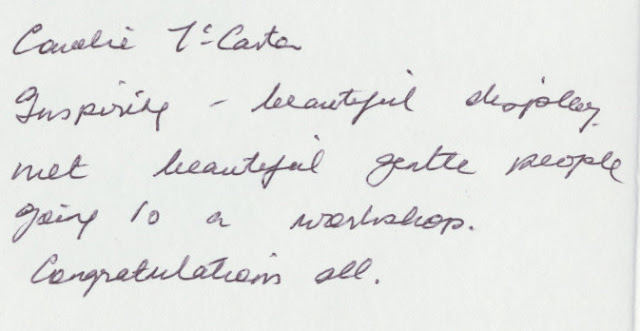 Coralie
Inspiring - beautiful display.
met beautiful gentle people
going to a workshop.
Congratulations all.